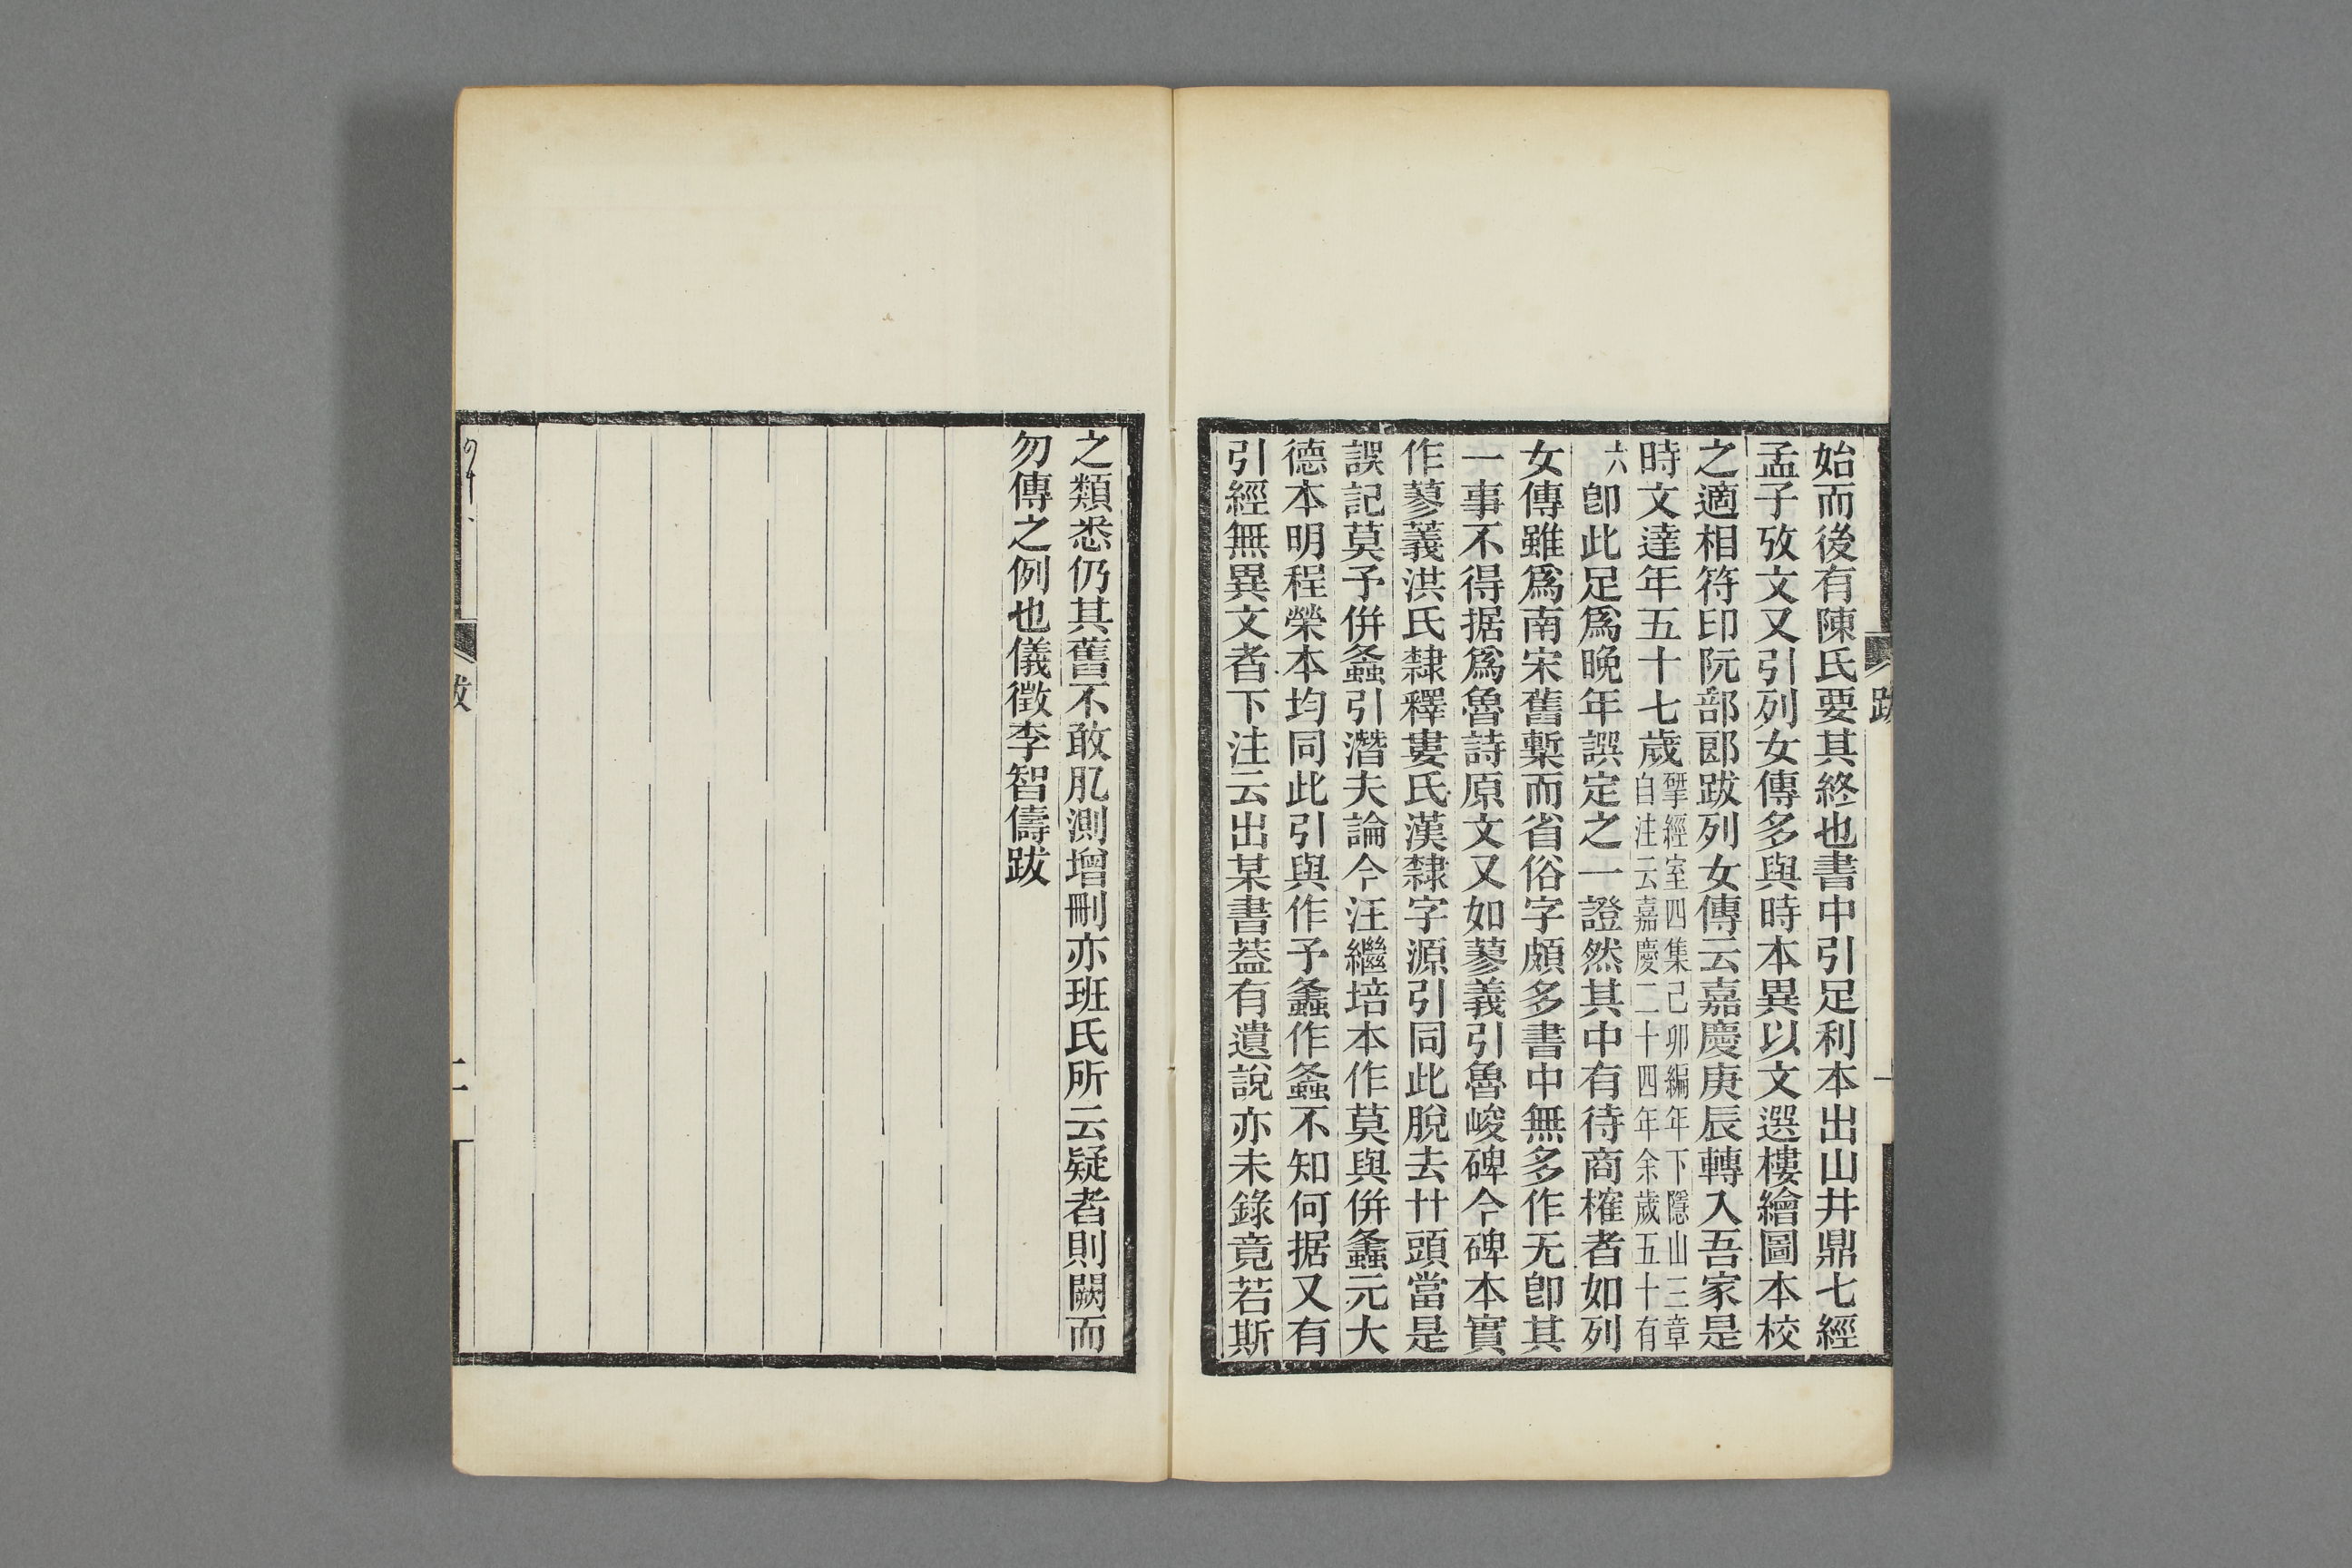 始而後有陳氏要其終也書中引足利本出山井鼎七經
孟子攷文又引列女傳多與時本異以文選樓繪圖本校
之適相符印阮部郎跋列女傳云嘉慶庚辰轉入吾家是
時文達年五十七歲揅經室四集己卯編年下隱山三章自注云嘉慶二十四年余歲五十有
六卽此足爲晚年譔定之一證然其中有待商榷者如列
女傳雖爲南宋舊槧而省俗字頗多書中無多作无卽其
一事不得据爲魯詩原文又如蓼義引魯峻碑今碑本實
作蓼䕏洪氏隸釋婁氏漢隸字源引同此脫去廿頭當是
誤記莫予併螽引潛夫論今汪繼培本作莫與併螽元大
德本明程榮本均同此引與作予螽作螽不知何据又有
引經無異文者下注云出某書葢有遺說亦未錄竟若斯
之類悉仍其舊不敢肊測增刪亦班氏所云疑者則闕而
勿傳之例也儀徵李智儔跋
跋
一
跋
二